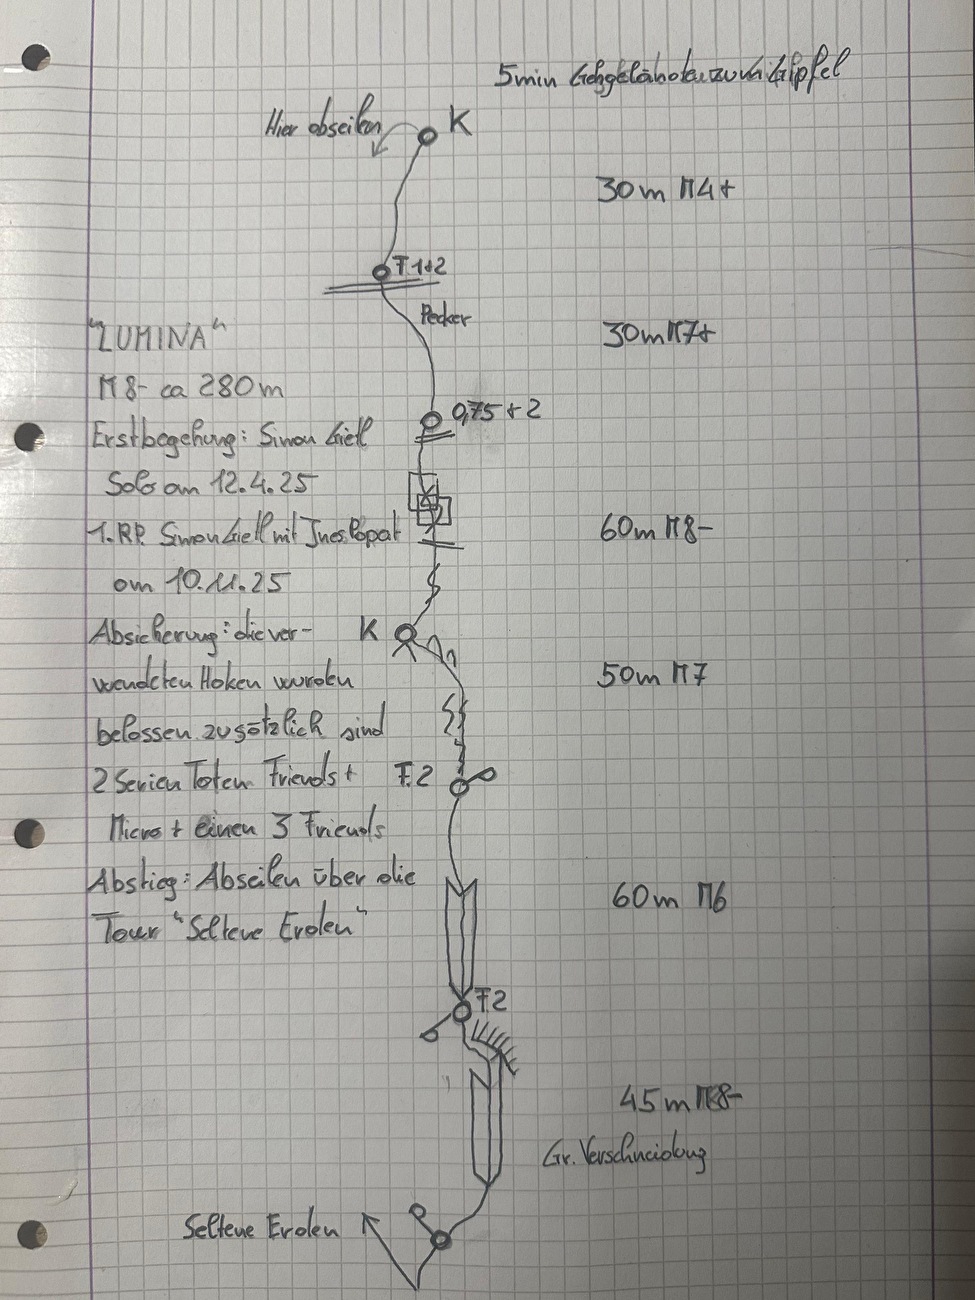 5min Gehgelände zum Gipfel
Hier abseilen
K
30m M4+
F 1+2
Pecker
30m M7+
"LUMINA"
M8- ca 280m
0,75 + 2
Erstbegehung: Simon Gietl
Solo am 12.4.25
1. RP. Simon Gietl mit Ines Popat
60m M8-
am 10.11.25
Absicherung: die ver-
K
wendeten Haken wurden
50m M7
belassen zusätzlich sind
2 Serien Totem Friends +
F.2
Micro + einen 3 Friends
Abstieg: Abseilen über die
60m M6
Tour "Seltene Erden"
F2
45m M8-
Gr. Verschneidung
Seltene Erden